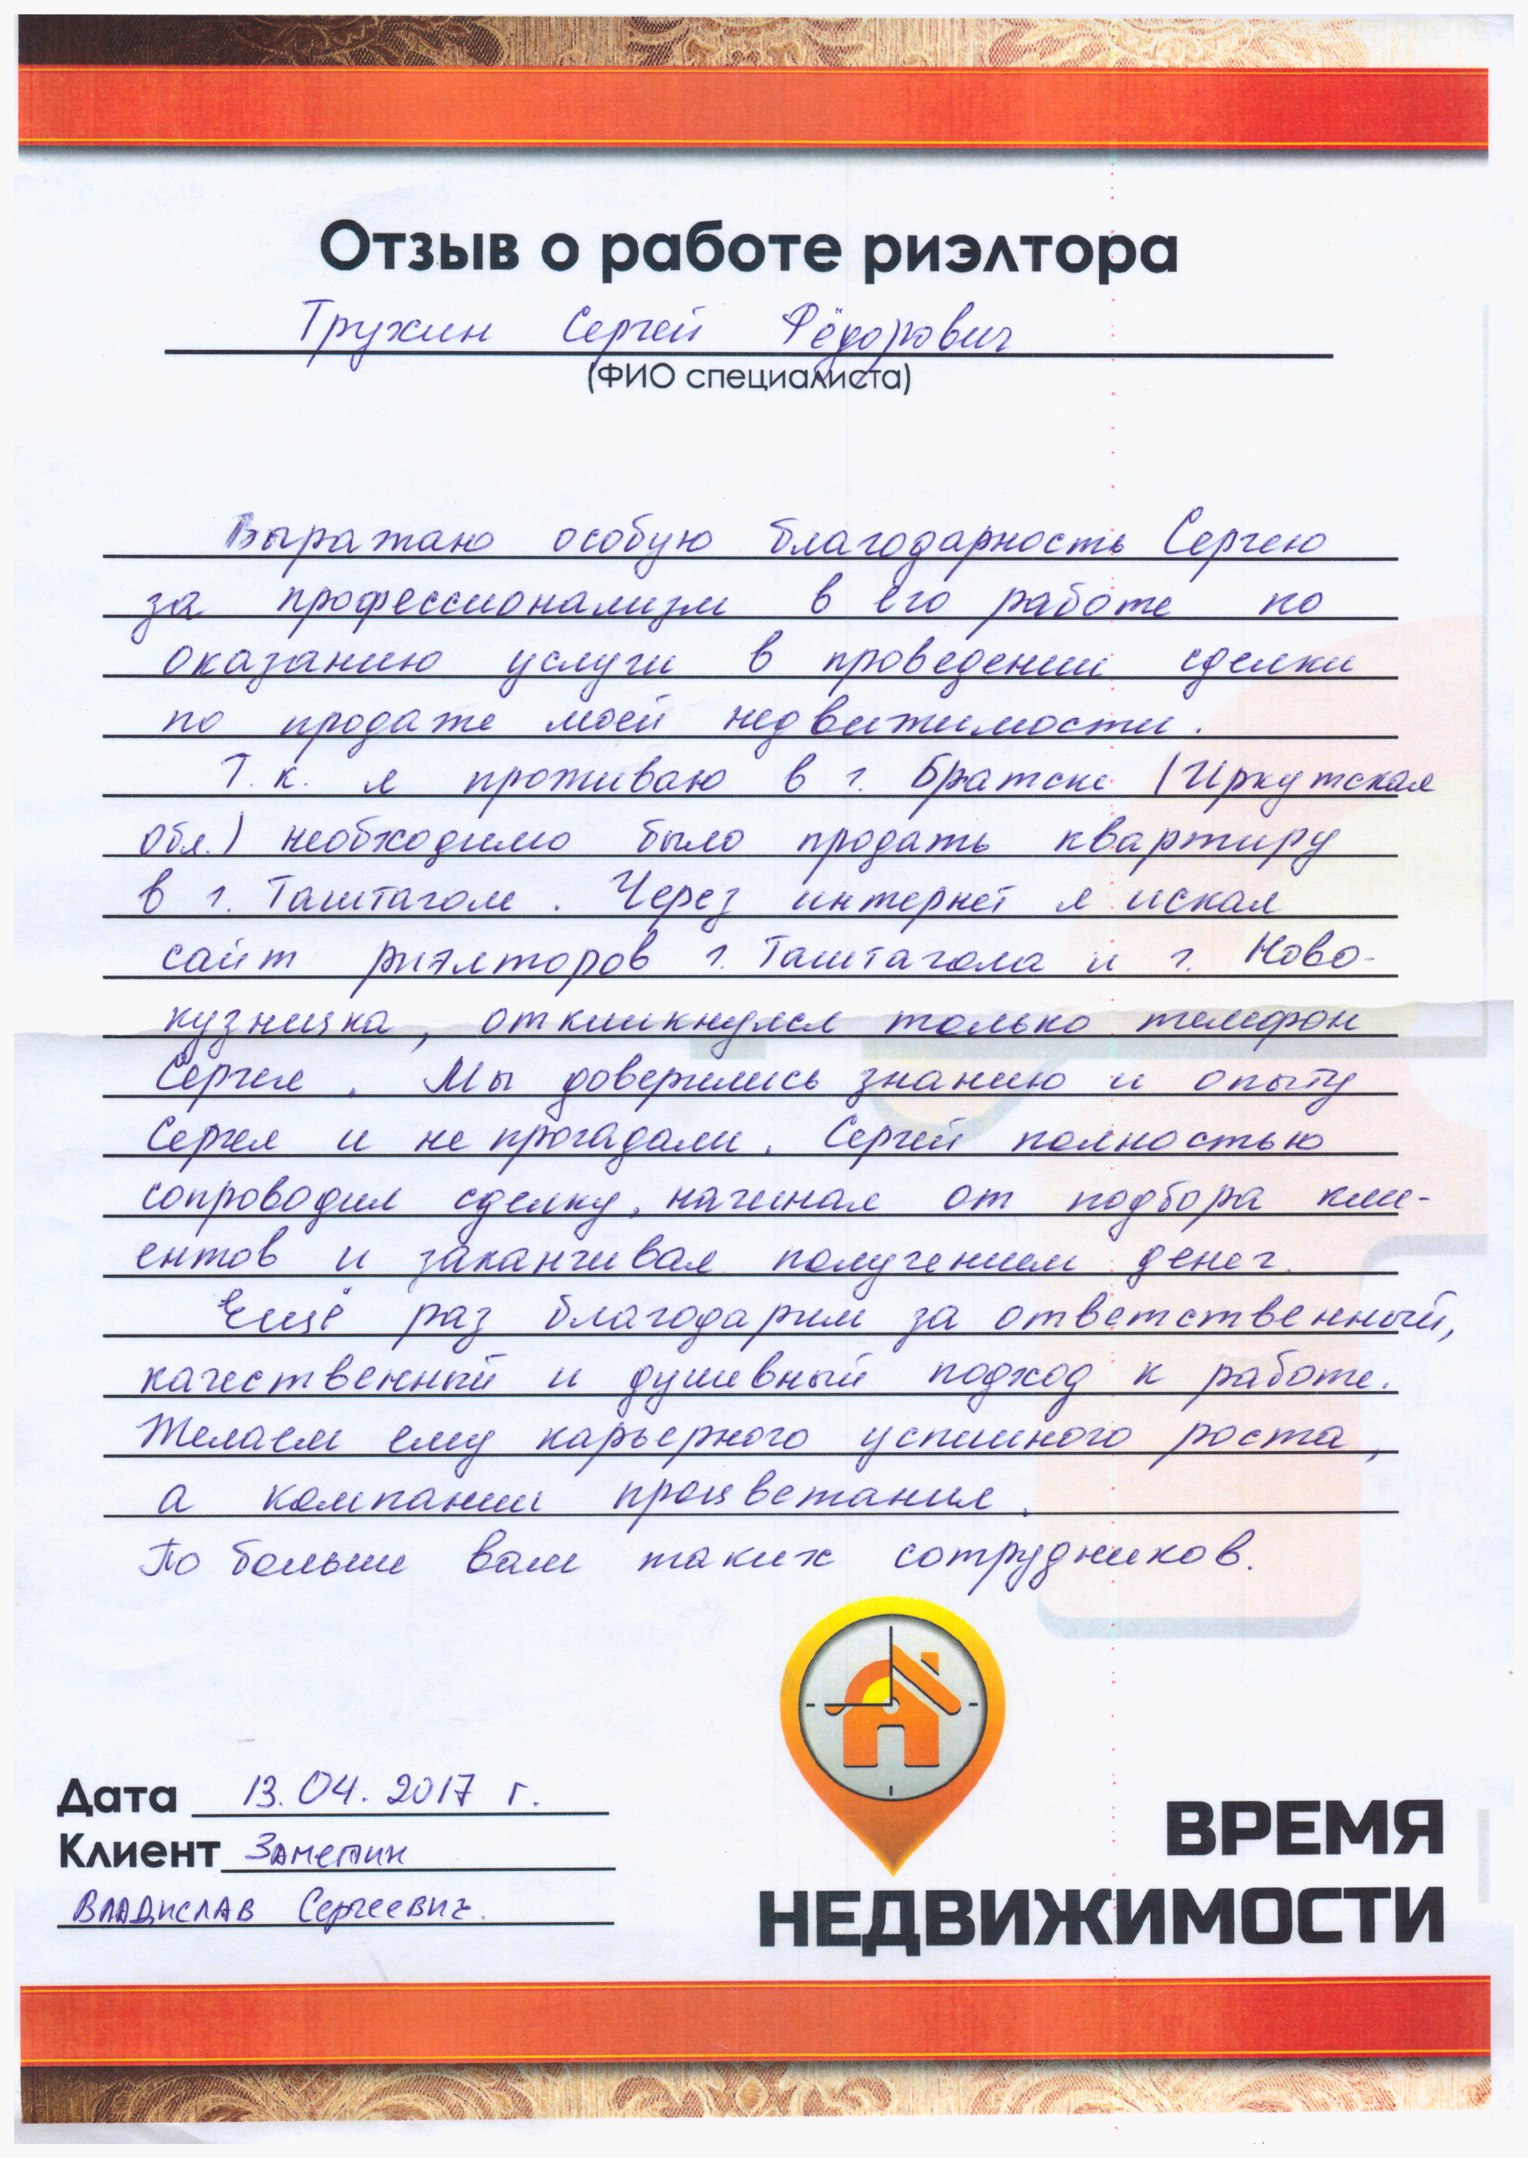 Отзыв о работе риэлтора
Трухин Сергей Фёдорович
(ФИО специалиста)
Выражаю особую благодарность Сергею
за профессионализм в его работе по
оказанию услуги в проведении сделки
по продаже моей недвижимости.
Т.к. я проживаю в г. Братске (Иркутская
обл.) необходимо было продать квартиру
в г. Таштаголе. Через интернет я искал
сайт риэлторов г. Таштагола и г. Ново-
кузнецка, откликнулся только телефон
Сергея. Мы доверились знанию и опыту
Сергея и не прогадали. Сергей полностью
сопроводил сделку, начиная от подбора кли-
ентов и заканчивая получением денег.
Ещё раз благодарим за ответственный,
качественный и душевный подход к работе.
Желаем ему карьерного успешного роста,
а компании процветания.
По больше вам таких сотрудников.
Дата 13.04.2017 г.
Клиент
Владислав Сергеевич.
ВРЕМЯ
НЕДВИЖИМОСТИ